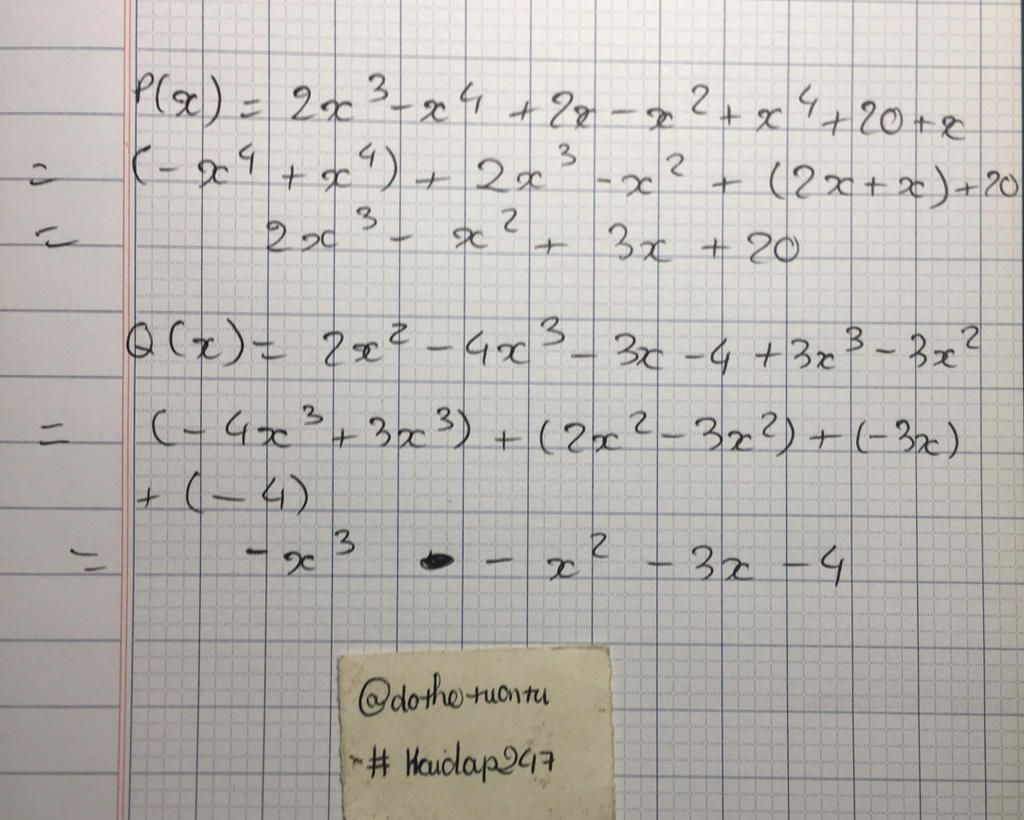 P(x) = 2x³ - x⁴ + 2x - x² + x⁴ + 20 + x
= (-x⁴ + x⁴) + 2x³ - x² + (2x + x) + 20
= 2x³ - x² + 3x + 20
Q(x) = 2x² - 4x³ - 3x - 4 + 3x³ - 3x²
= (-4x³ + 3x³) + (2x² - 3x²) + (-3x)
+ (-4)
= -x³ - x² - 3x - 4
@dothetuantu
-# Hoidap247